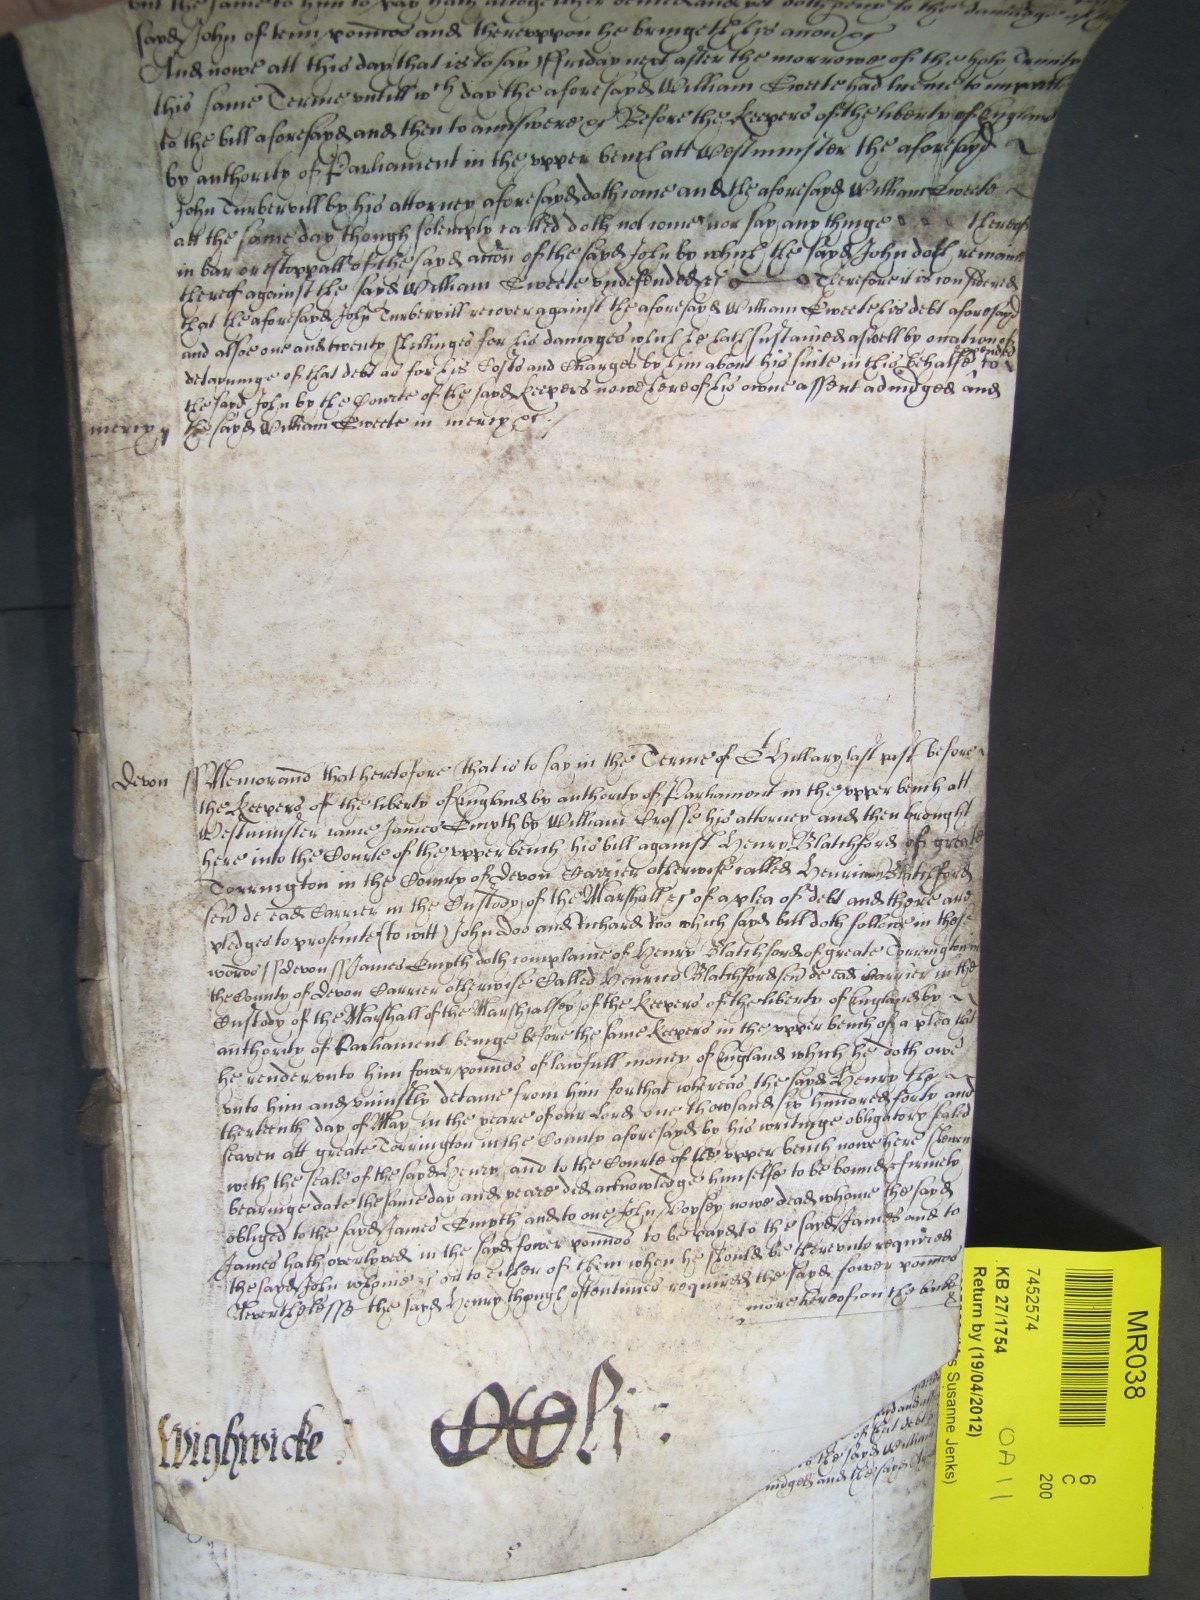 the same to him to pay hath altogether denied and yet doth deny to the damage of the
sayd John of tenn pounds and thereuppon he bringeth his accon &c
And nowe att this day that is to say Ffriday next after the morrowe of the holy Trinity
this same Terme untill wch day the aforesayd William Sweete had lycence to imparle
to the bill aforesayd and then to answere &c Before the Keepers of the liberty of England
by authority of Parliament in the upper bench att Westminster the aforesayd
John Turbervill by his attorney aforesayd doth come and the aforesayd William Sweete
att the same day though solemply called doth not come nor say any thinge thereof
in bar or estoppall of the sayd accon of the sayd John by which the sayd John doth remaine
thereof against the sayd William Sweete undefended &c Therefore it is considered
that the aforesayd John Turbervill recover against the aforesayd William Sweete his debt aforesayd
and alsoe one and twenty shillinges for his damages which he hath sustained aswell by occation of
detayninge of that debt as for his Costs and Charges by him about his suite in this behalfe expended to
the sayd John by the Courte of the sayd Keepers nowe here of his owne assent adiudged and
mercy the sayd William Sweete in mercy &c
Devon ss Memorand that heretofore that is to say in the Terme of St Hillary last past before
the Keepers of the liberty of England by authority of Parliament in the upper bench att
Westminster came James Smyth by William Crosse his attorney and then brought
here into the Courte of the upper bench his bill against Henry Blatchford of greate
Torrington in the County of Devon Carrier otherwise called Henricus Blatchford
sen de ead Carrier in the Custody of the Marshall &c of a plea of debt and there are
pledges to prosecute (to witt) John Doo and Richard Roo which sayd bill doth followe in these
words ss Devon ss James Smyth doth complaine of Henry Blatchford of greate Torrington in
the County of Devon Carrier otherwise Called Henrico Blatchford sen de ead Carrier in the
Custody of the Marshall of the Marshialsey of the Keepers of the liberty of England by
authority of Parliament beinge before the same Keepers in the upper bench of a plea that
he render unto him fower pounds of lawfull money of England which he doth owe
unto him and uniustly detaine from him for that whereas the sayd Henry the
therteenth day of May in the yeare of our Lord one thowsand six hundred forty and
seaven att greate Torrington in the County aforesayd by his writinge obligatory seal'd
with the seale of the sayd Henry and to the Courte of the upper bench nowe here shewen
bearinge date the same day and yeare did acknowledge himselfe to be bound & firmely
obliged to the sayd James Smyth and to one John Copsey nowe dead whome the sayd
James hath overlyved in the sayd fower pounds to be payd to the sayd James and to
the sayd John or to either of them when he should be thereunto required
Neverthelesse the sayd Henry though oftentimes required the sayd fower pounds
more hereof on the backe
Wightwicke
Oli:
of that debt
the sayd William
iudged and the sayd
MR038
6
C
200
7452574
KB 27/1754
Return by (19/04/2012)
Susanne Jenks)
OA 11